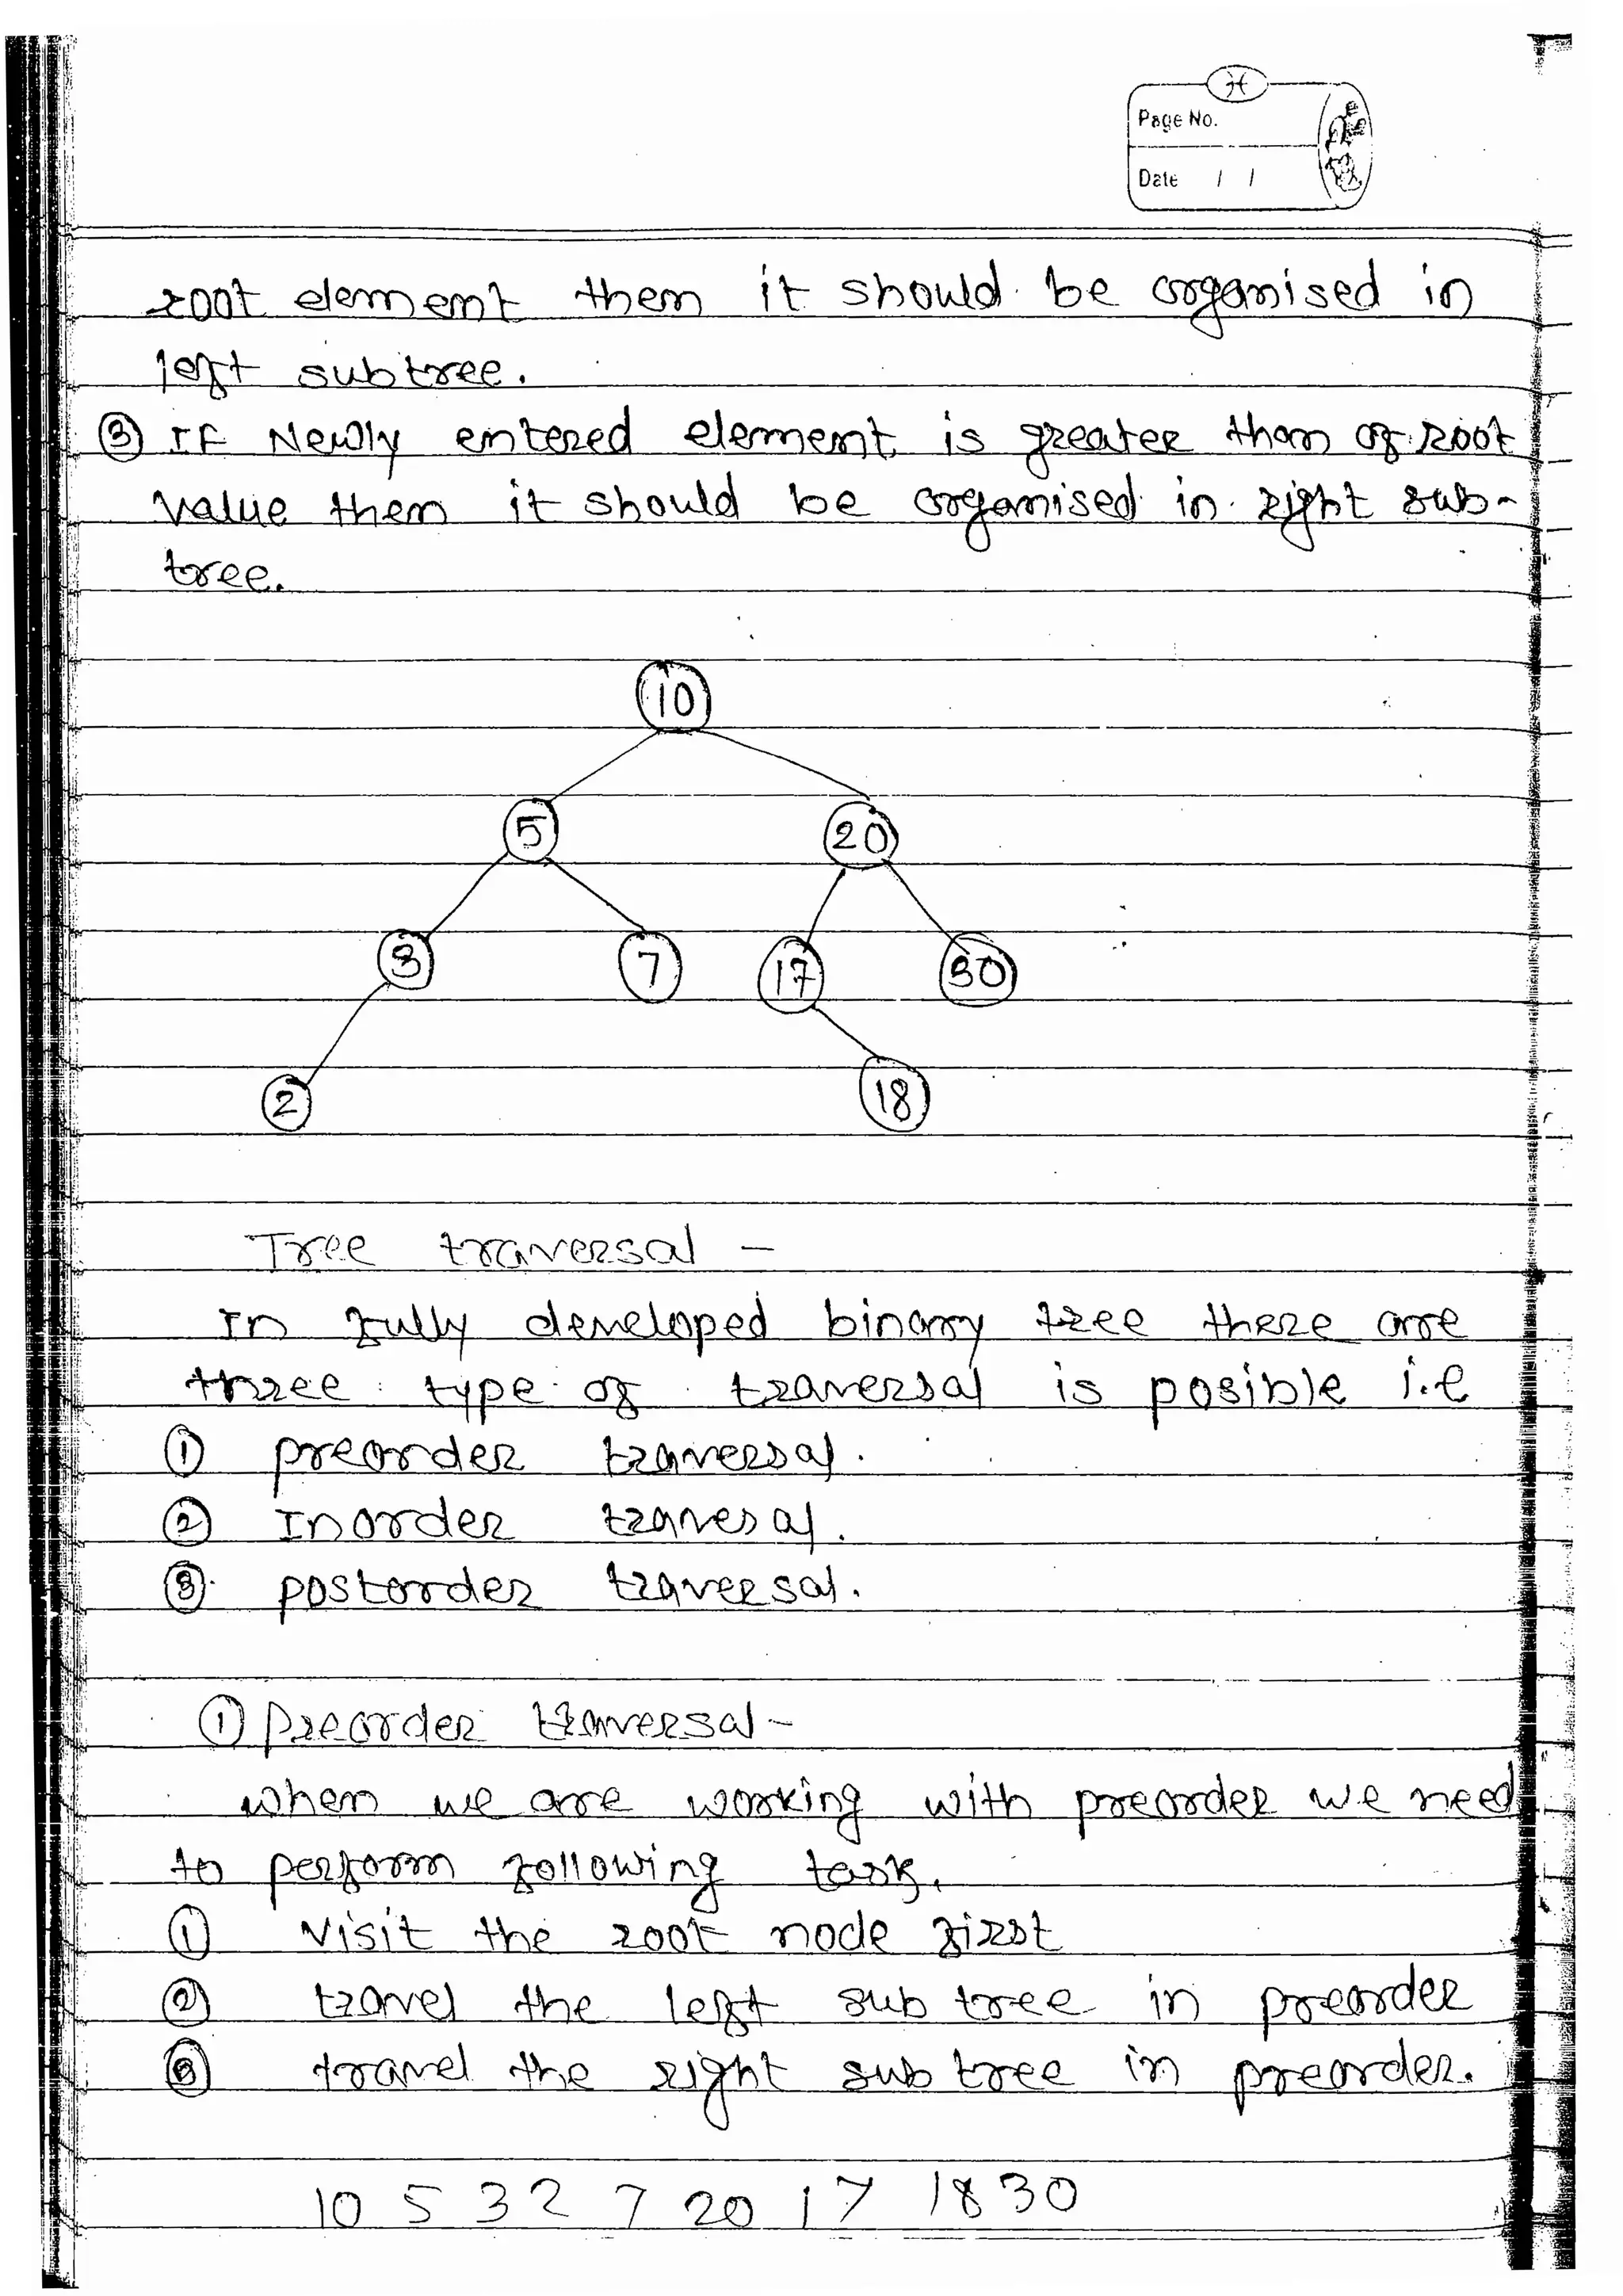 Page No.
Date / /
root element then it should be organised in
left subtree.
③ IF Newly entered element is greater than of root
value then it should be organised in right sub-
tree.
10
5 20
3 7 17 30
2 18
Tree traversal -
In fully developed binary tree there are
three type of traversal is posible i.e
① preorder traversal.
② Inorder travesal.
③ postorder traversal.
① Preorder traversal -
when we are working with preorder we need
to perform following task.
① Visit the root node first
② travel the left sub tree in preorder
③ travel the right sub tree in preorder.
10 5 3 2 7 20 17 18 30